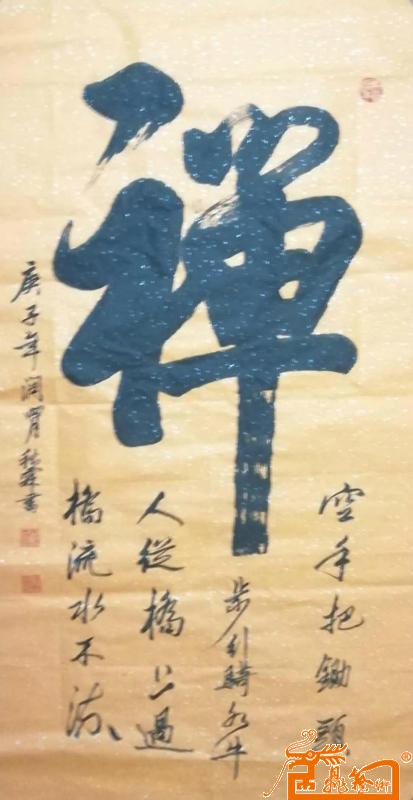 禅
空手把鋤頭
步行騎水牛
人從橋上過
橋流水不流
庚子年閏月
書